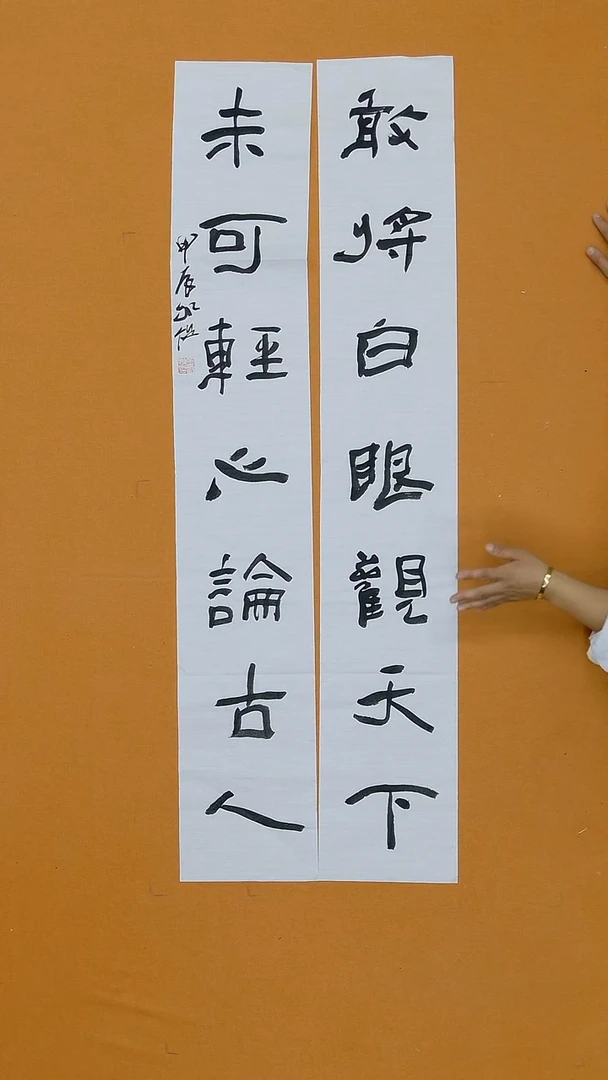 敢將白眼觀天下
未可輕心論古人
甲辰